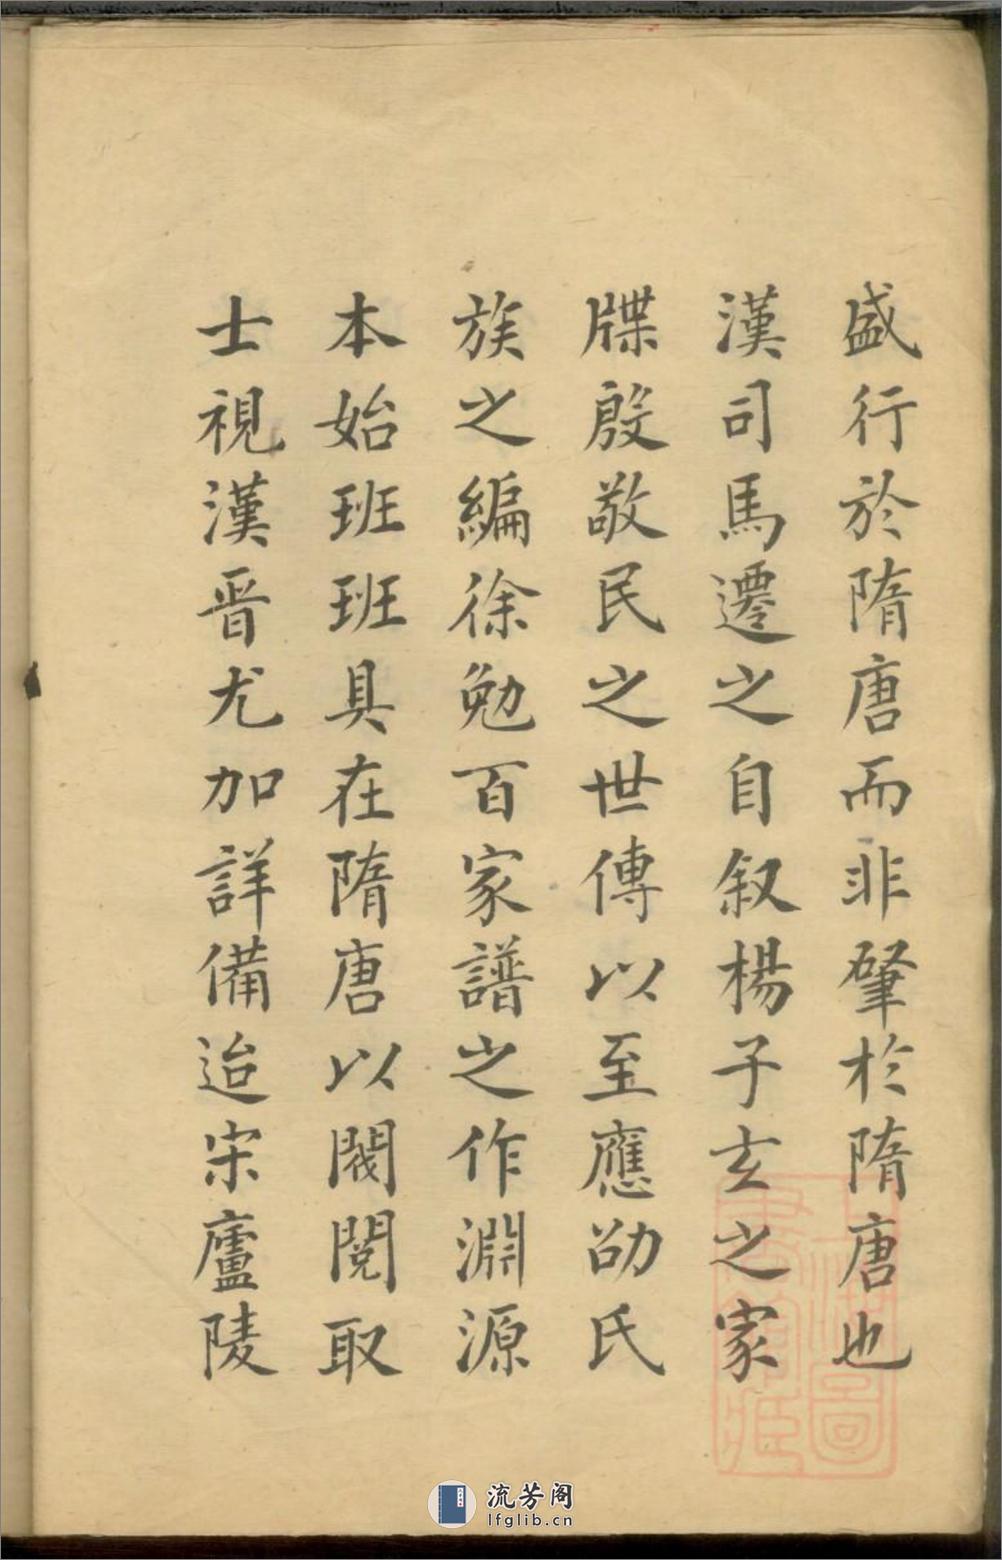 盛行於隋唐而非肇於隋唐也
漢司馬遷之自叙楊子玄之家
牒殷敬民之世傳以至應劭氏
族之編徐勉百家譜之作淵源
本始班班具在隋唐以閥閱取
士視漢晋尤加詳備迨宋廬陵
流芳阁
lfglib.cn